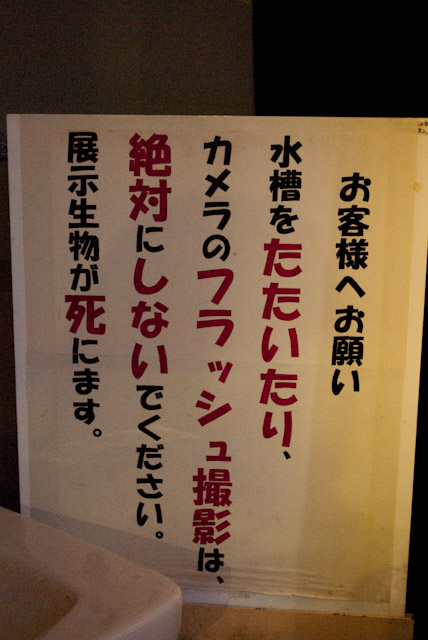 お客様へお願い
水槽をたたいたり、
カメラのフラッシュ撮影は、
絶対にしないでください。
展示生物が死にます。